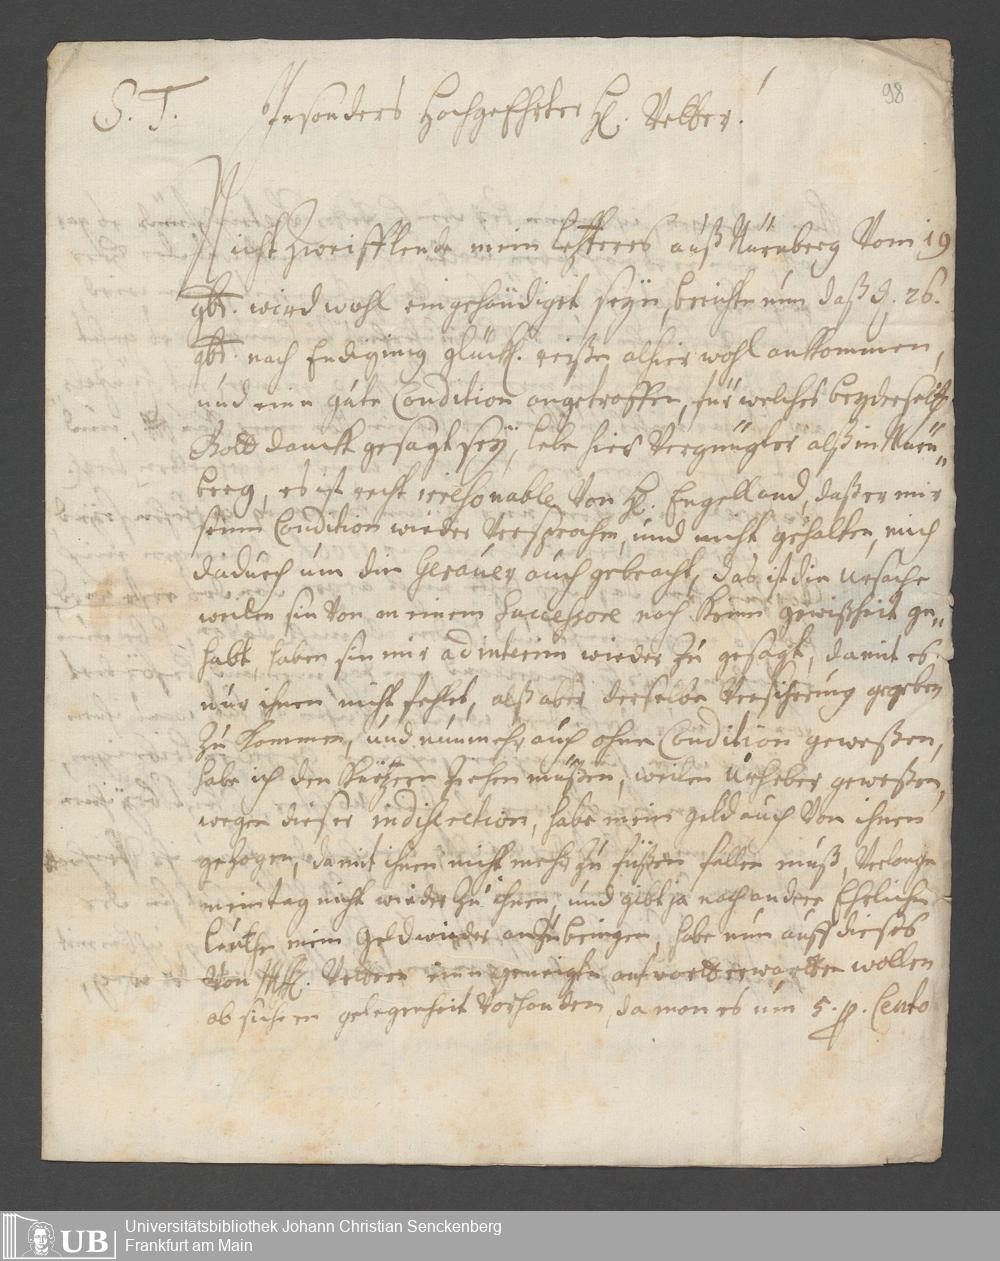 98
S. T. Insonders Hochgeehrter H. Vetter!
Nicht zweifflende mein letzteres auß Nürnberg Vom 19
9br. wird wohl eingehändiget seyn, berichte nun daß d. 26.
9br. nach Endigung glückl. reißen alhier wohl ankommen,
und eine gute Condition angetroffen, für welches beyderseits
Gott danck gesagt sey, lebe hier Vergnügter alß in Nürn„
berg, es ist recht Von H. Engelland, daß er mir
seine Condition wieder Versprochen, und nicht gehalten, mich
dadurch um die auch gebracht, das ist die Ursache
weilen sie Von einem Successore noch keine gewißheit ge„
habt, haben sie mir ad interim wieder zu gesagt, damit es
nur ihnen nicht fehlet, alß aber derselbe Versicherung gegeben
zu kommen, und nunmehr auch ohne Condition geweßen,
habe ich den Kürtzern ziehen müßen, weilen Urheber geweßen,
wegen dieser indiscretion, habe mein geld auch Von ihnen
gezogen, damit ihnen nicht mehr zu füßen fallen muß, Verlange
mein tag nicht wieder zu ihnen, und gibt ja noch andere Ehrliche
leuthe mein geld wieder anzubringen, habe nun auff dieses
Von H. Vettern eine geneigte antwortt erwartten wollen
ob gelegenheit Vorhanden, da man es um 5. p. Cento
Universitätsbibliothek Johann Christian Senckenberg
Frankfurt am Main
UB